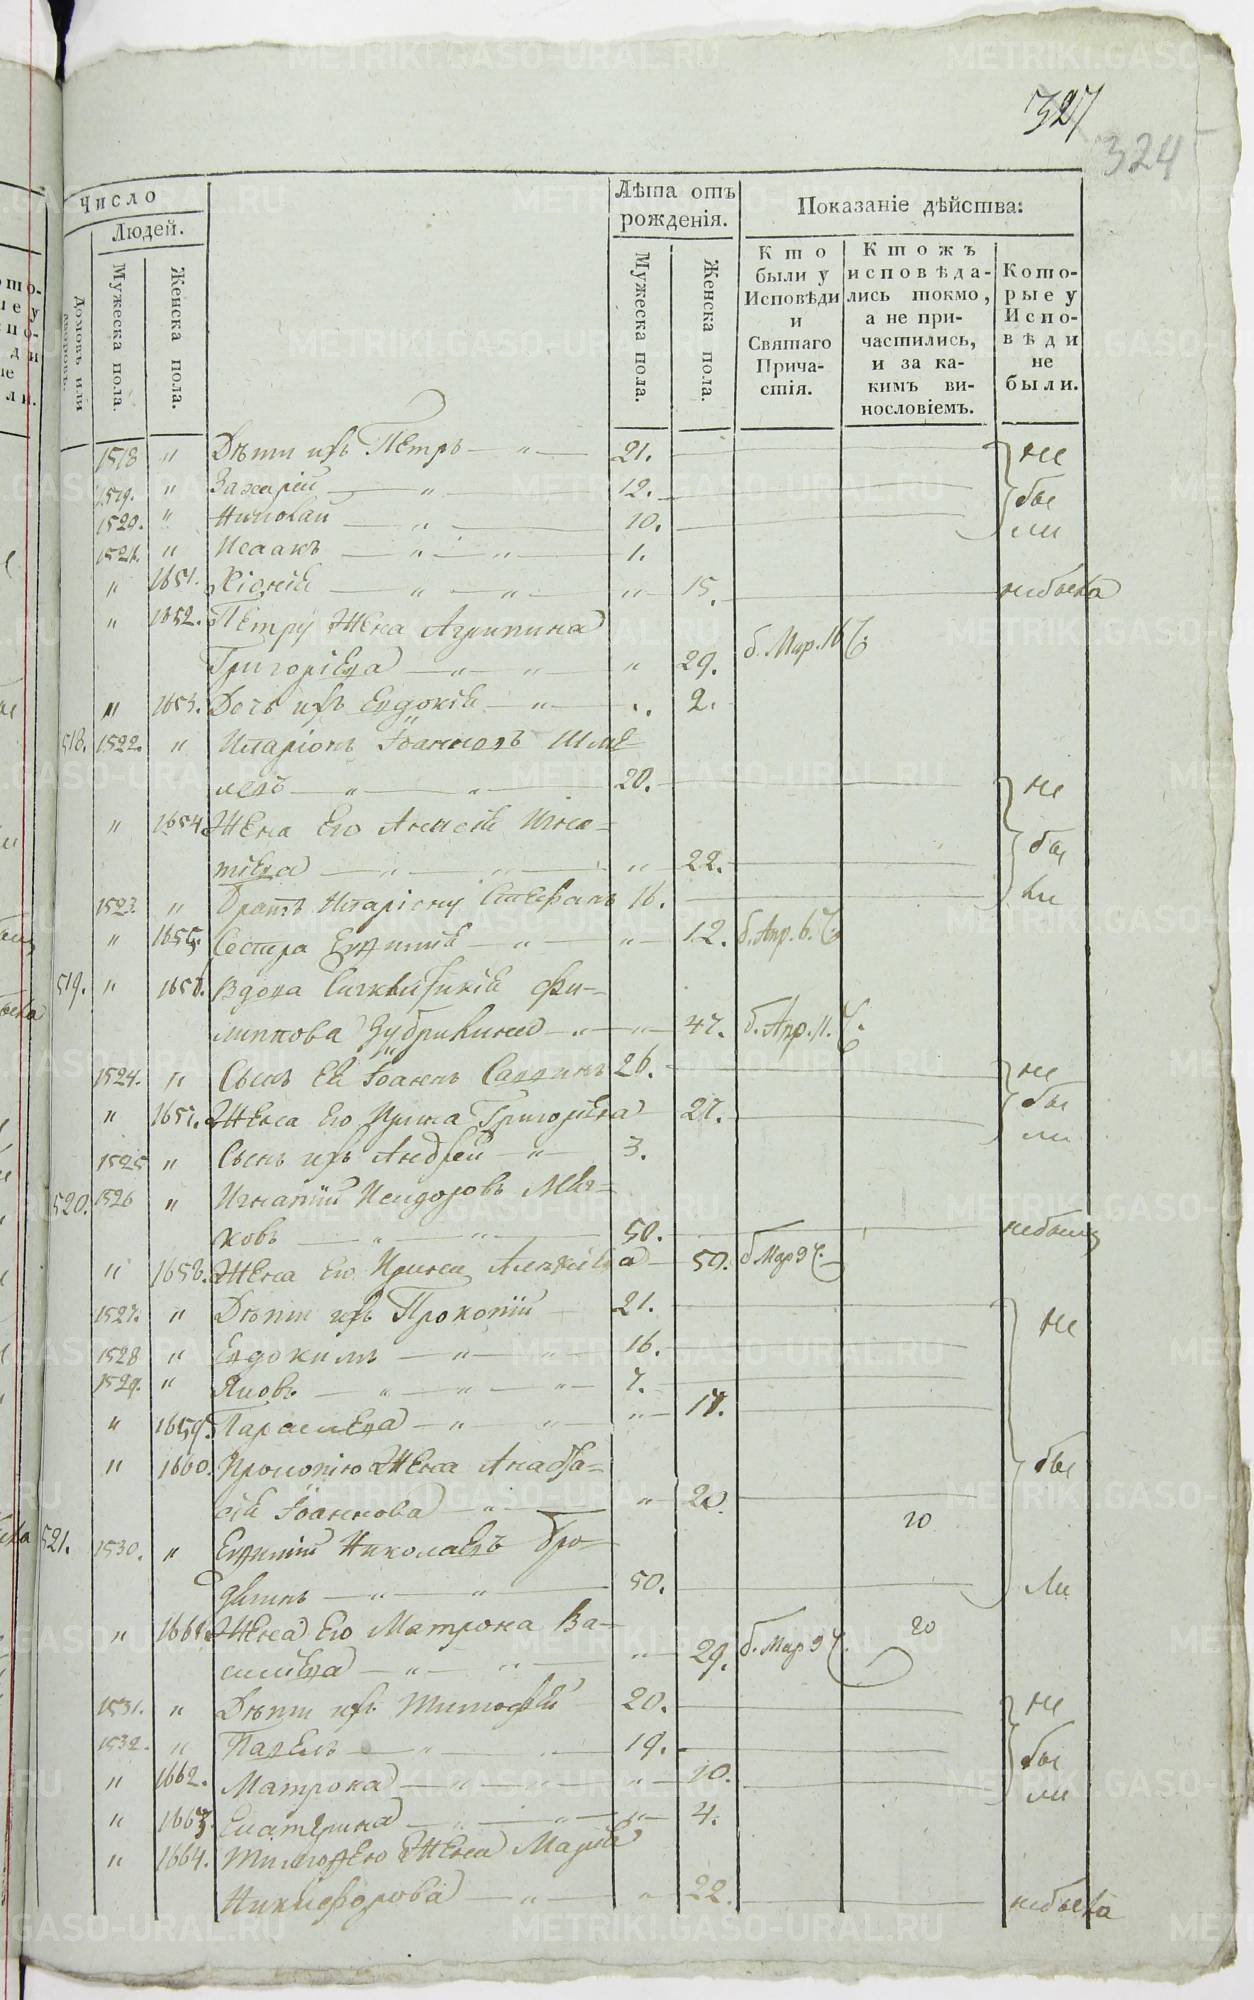 327
324
Число
Людей.
Домовъ или
Мужеска пола.
Женска пола.
Лѣта отъ рожденія.
Мужеска пола.
Женска пола.
Показаніе дѣйства:
Кто были у Исповѣди и Святаго Причастія.
Ктожъ исповѣдались токмо, а не причастились, и за какимъ винословіемъ.
Которые у Исповѣди не были.
1518 " Дѣти ихъ Петръ — " — 21. не
1519. " Захарій — " — 12. бы
1520. " Николай — " — 10. ли
1521. " Исаакъ — " — " — 1.
" 1651. — " — " — " 15. небыла
" 1652. Петру Жена Агрипина
Григоріева — " — " — " 29. б. Мар. 16 Ч.
" 1653. Дочь ихъ Евдокія — " — " 2.
518. 1522. " Иларіонъ Іоанновъ
— " — " — 20. не
" 1654. Жена Его Игна-
тіева — " — " — " 22. бы
1523. " Братъ Иларіону Стефанъ 16. ли
" 1655. Сестра Евфимія — " — " 12. б. Апр. 6. Ч.
519. " 1656. Вдова Сигклитикія Фи-
липпова — " — " 47. б. Апр. 11. Ч.
1524. " Сынъ Ея Іоаннъ Саввинъ 26. не
" 1657. Жена Его Ирина Григорьева 27. бы
ли
1525 " Сынъ ихъ Андрей — " — 3.
520. 1526 " Игнатій Исидоровъ
ковъ — " — " — 50. небылъ
" 1658. Жена Его Ирина 50. б Мар 9 Ч.
1527. " Дѣти ихъ Прокопій — 21. не
1528 " Евдокимъ — " — " — 16.
1529. " Яковъ — " — " — " — 7.
" 1659. Параскева — " — " — " 17.
" 1660. Прокопію Жена Анаста-
сія Іоаннова — " — " 20 бы
20
521. 1530. " Евфимій Николаевъ Бро-
— " — " — 50. ли
" 1661. Жена Его Матрона Ва- 20
сильева — " — " — " 29. б. Мар 9 Ч.
1531. " Дѣти ихъ Тимофей 20. не
1532. " Павелъ — " — " — 19. бы
" 1662. Матрона — " — " — " 10. ли
" 1663. Екатерина — " — " — " 4.
" 1664. Тимофею Жена Марія
Никифорова — " — " 22. небыла